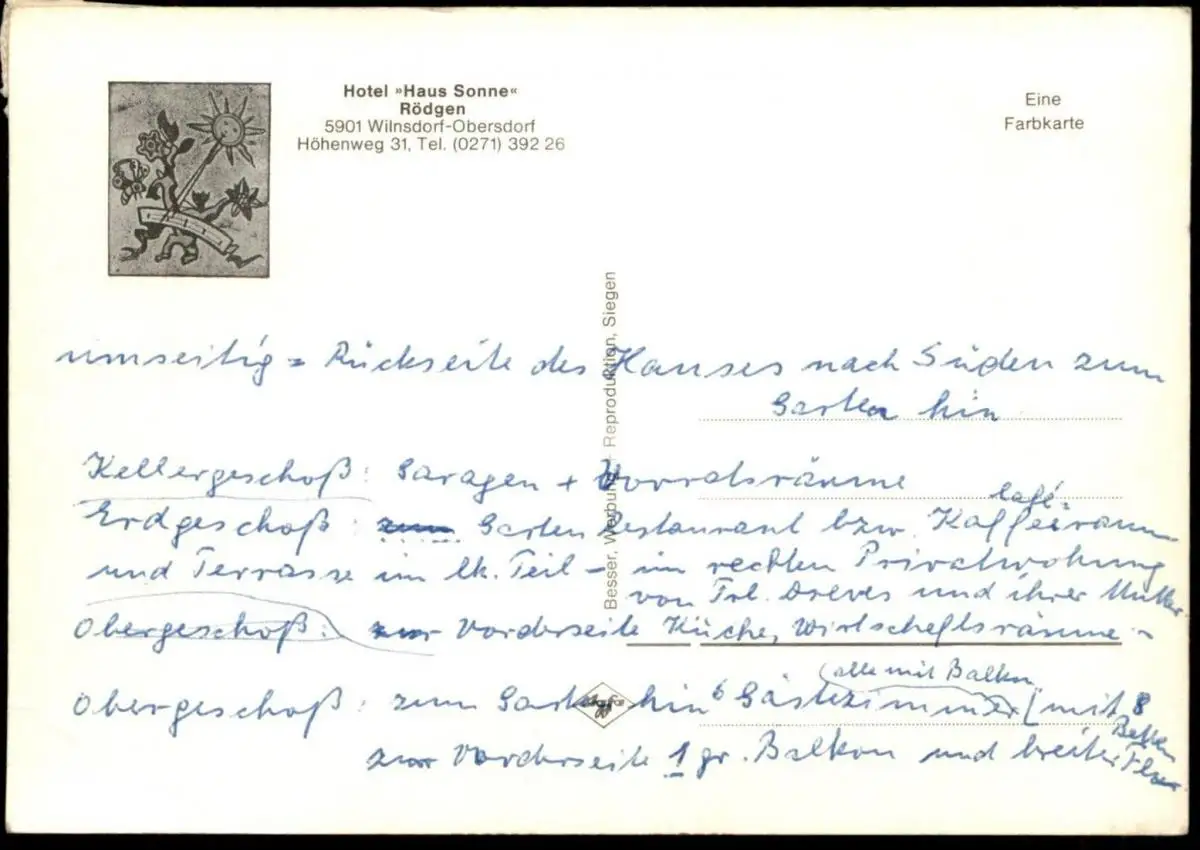 Hotel »Haus Sonne«
Rödgen
5901 Wilnsdorf-Obersdorf
Höhenweg 31, Tel. (0271) 392 26
Eine
Farbkarte
Besser, Werbung - Reproduktion, Siegen
umseitig = Rückseite des Hauses nach Süden zum
Garten hin
Kellergeschoß: Garagen + Vorratsräume
Café-
Erdgeschoß: zum Garten Restaurant bzw. Kaffeeraum
und Terrasse im lk. Teil - im rechten Privatwohnung
von Frl. Dreves und ihrer Mutter
Obergeschoß: zur Vorderseite Küche, Wirtschaftsräume -
(alle mit Balkon
Obergeschoß: zum Garten hin 6 Gästezimmer (mit 8
Betten
zur Vorderseite 1 gr. Balkon und breiter Flur